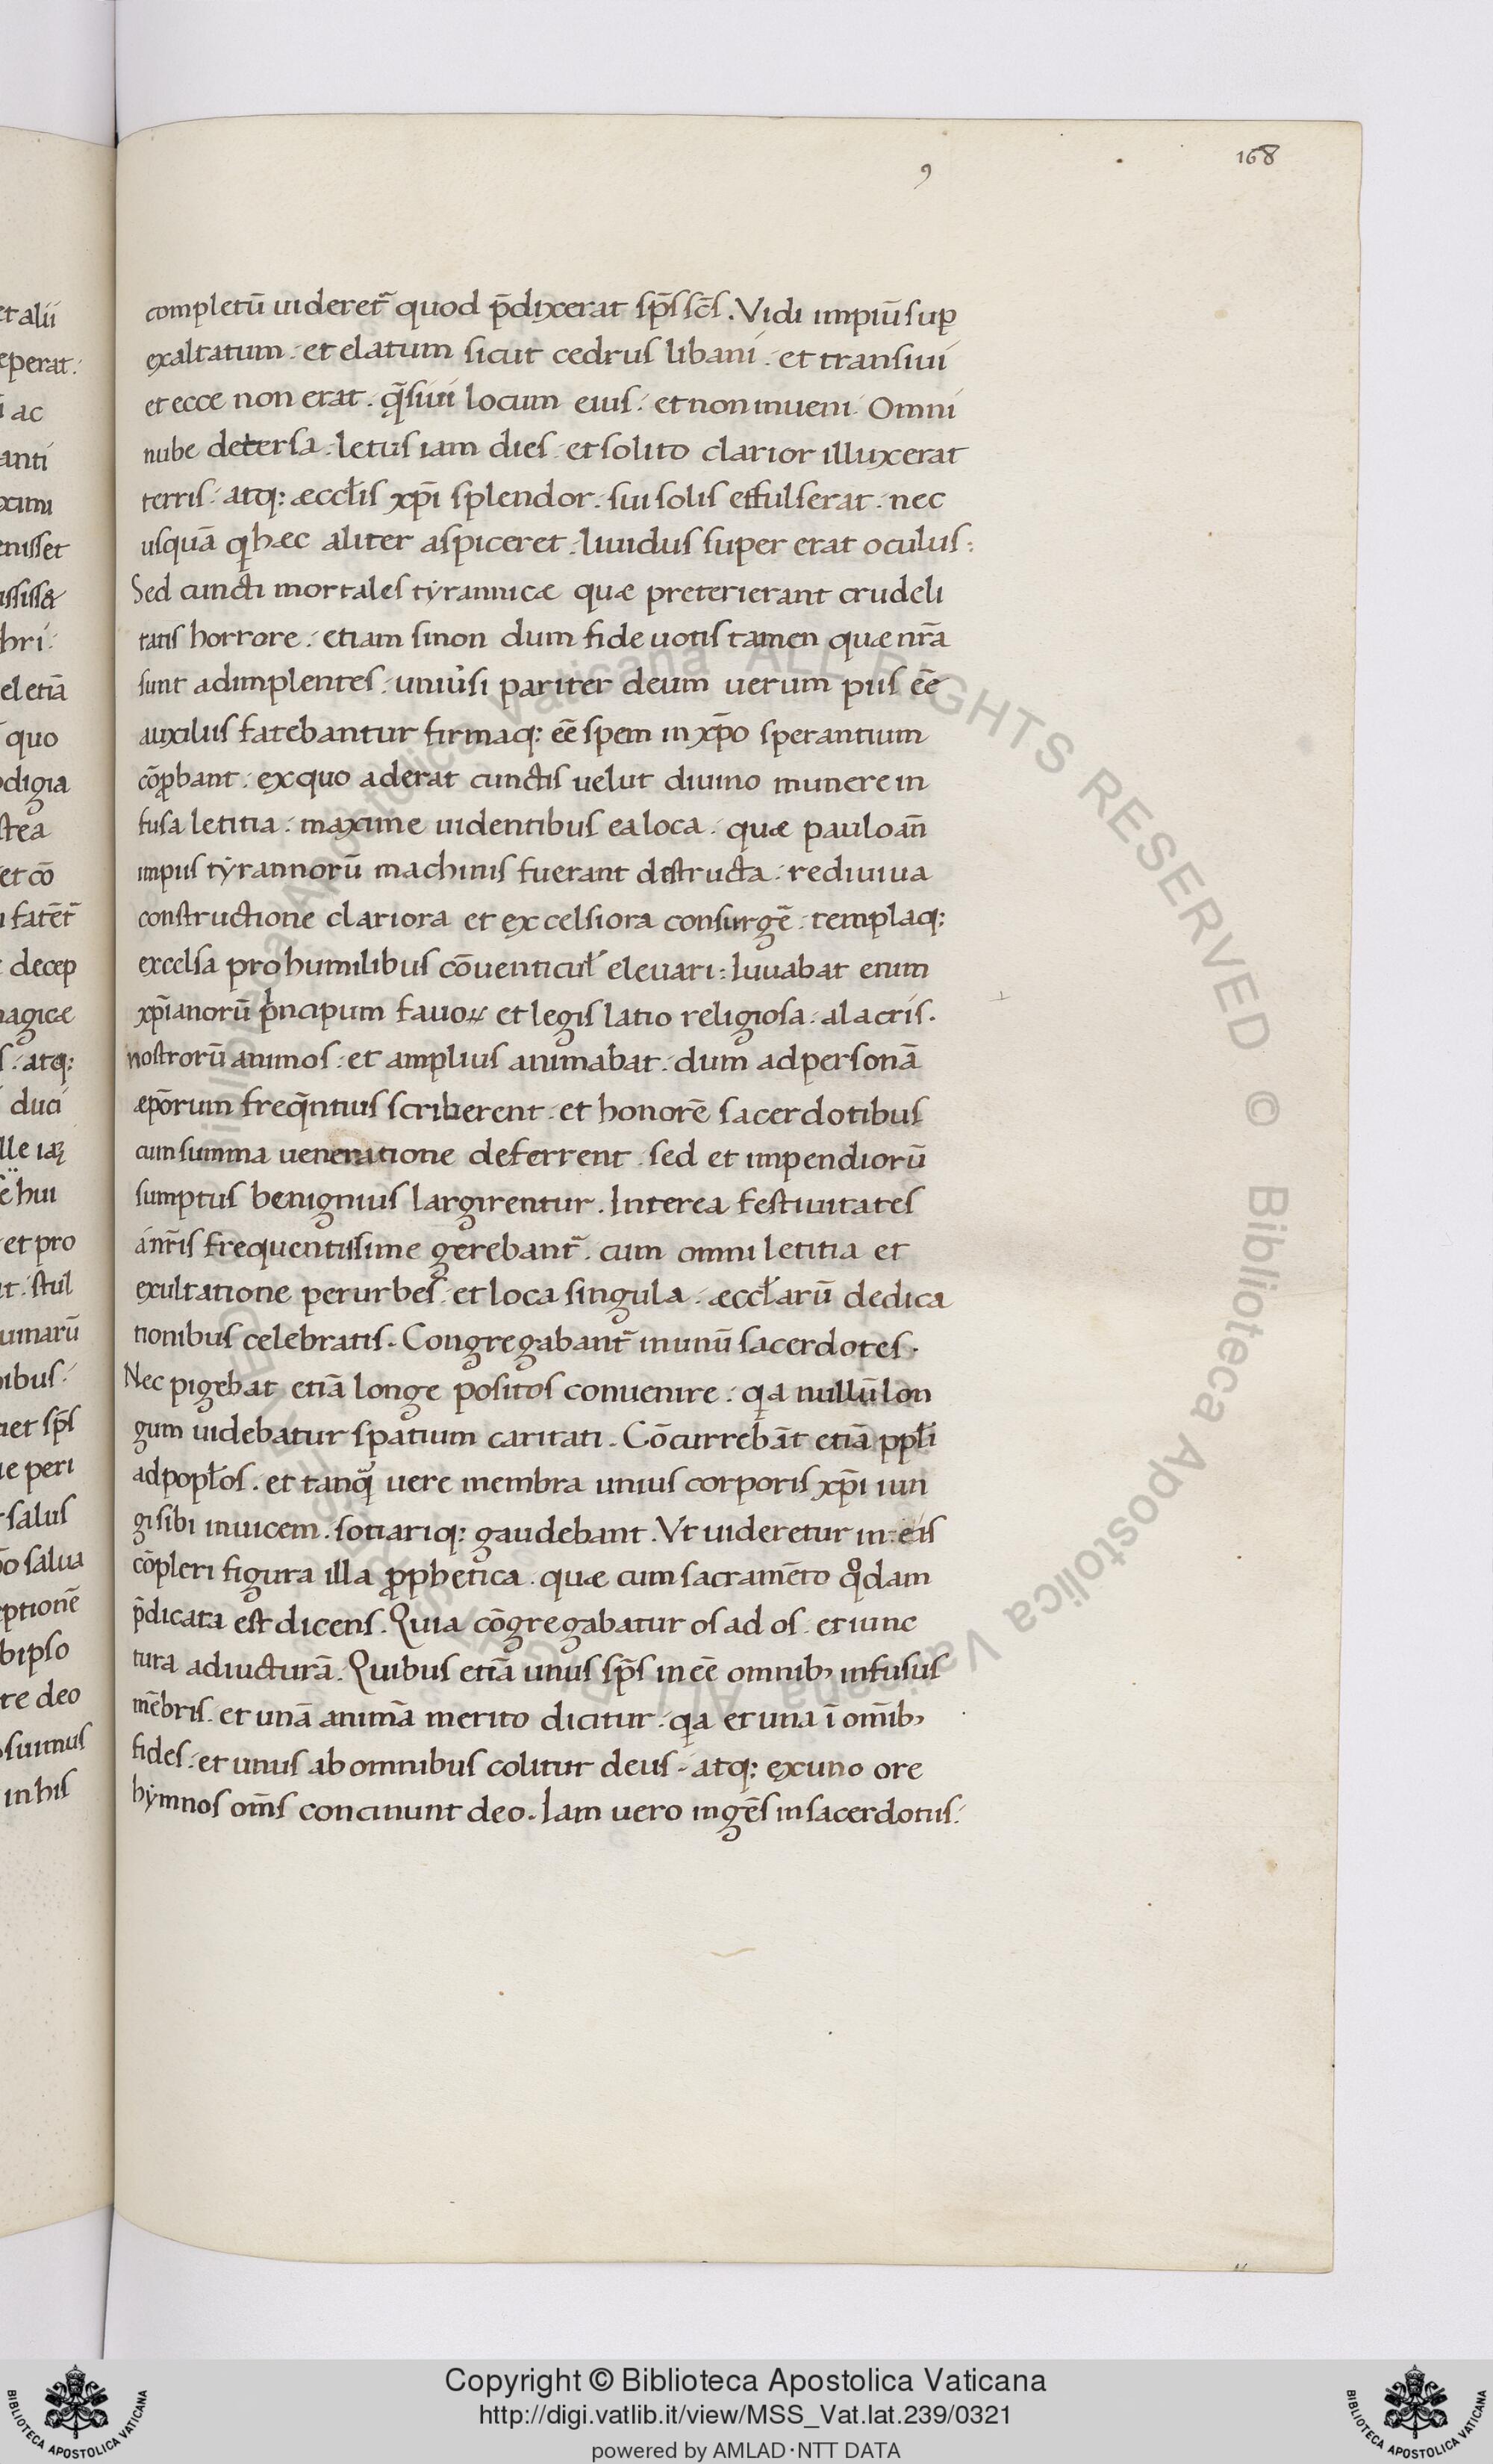 168
completū uideret᷑ quod p̄dixerat sp̄s sc̄s. Vidi impiū sup
exaltatum. et elatum sicut cedrus libani. et transiui
et ecce non erat. q̄siui locum eius. et non inueni. Omni
nube detersa. letus iam dies. et solito clarior illuxerat
terris. atq: æccl̄is xp̄i splendor. sui solis effulserat. nec
usquā qi hæc aliter aspiceret. liuidus super erat oculus:
Sed cuncti mortales tyrannicæ quæ preterierant crudeli
tatis horrore. etiam sinon dum fide uotis tamen quæ nr̄a
sunt adimplentes. uniuersi pariter deum uerum piis ēē
auxiliis fatebantur firmaq: ēē spem in xp̄o sperantium
cōꝓbant. ex quo aderat cunctis uelut diuino munere in
fusa letitia. maxime uidentibus ea loca. quæ paulo an̄
impiis tyrannorū machinis fuerant destructa. rediuiua
constructione clariora et excelsiora consurgē. templaq:
excelsa pro humilibus cōuenticuł eleuari: Iuuabat enim
xp̄ianorū pⁱncipum fauoꝝ et legis latio religiosa. alacris.
nostrorū animos. et amplius animabat. dum ad personā
æp̄orum freq̄ntius scriberent. et honorē sacerdotibus
cum summa ueneratione deferrent. sed et impendiorū
sumptus benignius largirentur. Interea festiuitates
anr̄is frequentissime gerebant᷑. cum omni letitia et
exultatione per urbes. et loca singula. æccl̄arū dedica
tionibus celebratis. Congregabant᷑ in unū sacerdotes.
Nec pigebat etiā longe positos conuenire. qia nullū lon
gum uidebatur spatium caritati. Cōcurrebāt etiā ppłi
ad popłos. et tanqͣ uere membra unius corporis xp̄i iun
gi sibi inuicem. sotiariq: gaudebant. Vt uideretur in eis
cōpleri figura illa ꝓphetica. quæ cum sacramēto qͦdam
p̄dicata est dicens. Quia cōgregabatur os ad os. et iunc
tura ad iuncturā. Quibus etiā unus sp̄s inēē omnib; infusus
mēbris. et unā animā merito dicitur. qia et una ī om̄ib;
fides. et unus ab omnibus colitur deus. atq: ex uno ore
hymnos om̄s concinunt deo. Iam uero ingēs in sacerdotiis.
et alii
eperat.
ac
anti
ximi
enisset
hri.
el etiā
quo
digia
stea
et cō
fatēt᷑
decep
agicæ
atq:
duci
lle
hui
et pro
stul
umarū
ibus.
et sp̄s
e peri
salus
o salua
ptionē
b ipso
te deo
suimus
in his
© Biblioteca Apostolica Vaticana ALL RIGHTS RESERVED © Biblioteca Apostolica Vaticana ALL RIGHTS RESERVED
Copyright © Biblioteca Apostolica Vaticana
http://digi.vatlib.it/view/MSS_Vat.lat.239/0321
powered by AMLAD·NTT DATA
BIBLIOTECA APOSTOLICA VATICANA
BIBLIOTECA APOSTOLICA VATICANA